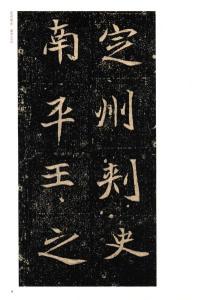 定州刺史
南平王之